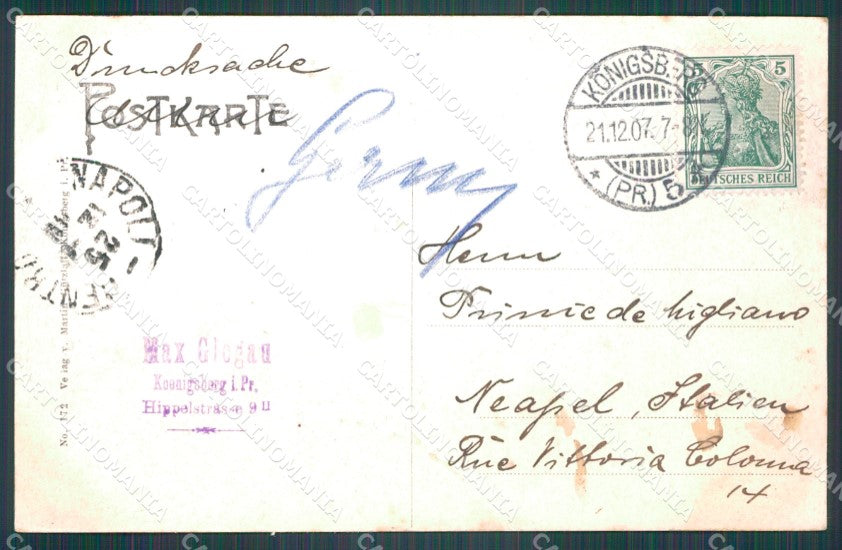 Drucksache
POSTKARTE
KÖNIGSBERG
21.12.07. 7-8V.
* (PR.) 5 *
5
DEUTSCHES REICH
Germ
NAPOLI
Herrn
Prince de Migliano
Neapel, Italien
Rue Vittoria Colonna
14
Max Glogau
Koenigsberg i. Pr,
Hippelstrasse 9 II
No. 172 Verlag v. Martin
CARTOLINOMANIA